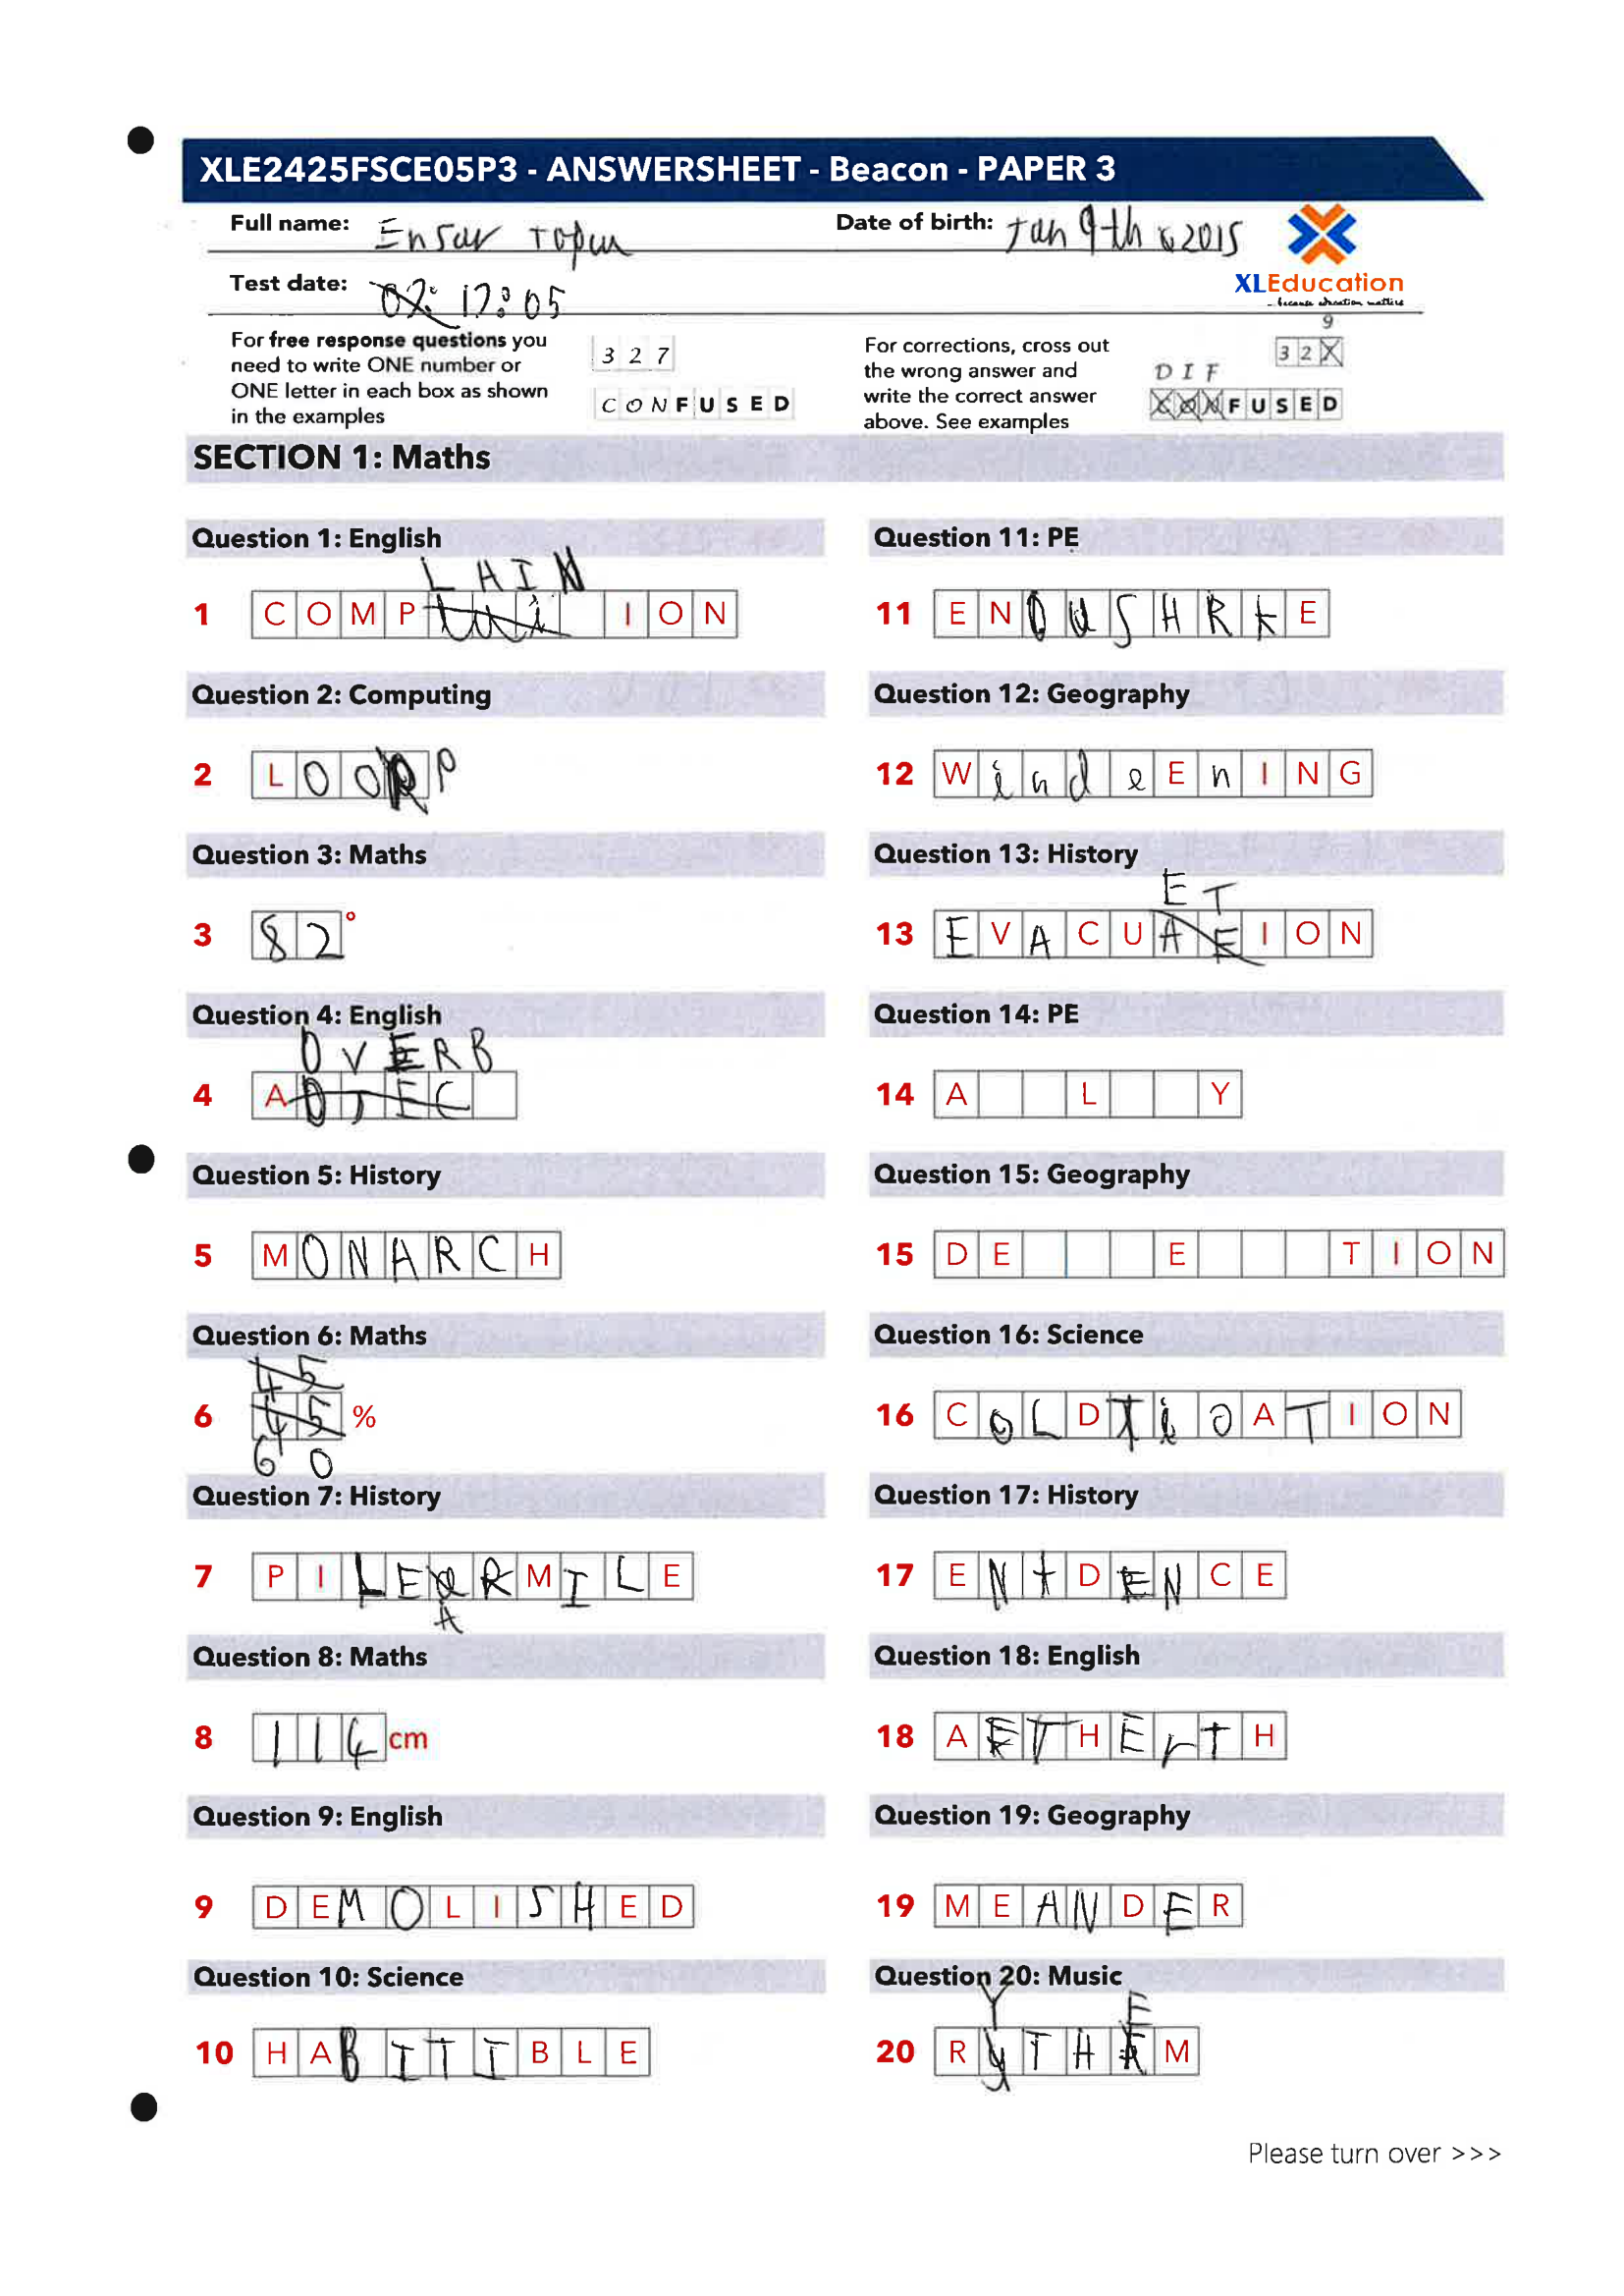 XLE2425FSCE05P3 - ANSWERSHEET - Beacon - PAPER 3
Full name: Ensar Topcu
Date of birth: Jan 9th 2015
Test date: 17:05
XLEducation
because education matters
For free response questions you
need to write ONE number or
ONE letter in each box as shown
in the examples
3 2 7
C O N F U S E D
For corrections, cross out
the wrong answer and
write the correct answer
above. See examples
9
3 2 X
D I F
F U S E D
SECTION 1: Maths
Question 1: English
L A I N
1 C O M P I O N
Question 2: Computing
2 L O O P
Question 3: Maths
3 8 2 °
Question 4: English
O V E R B
4 A O T E C
Question 5: History
5 M O N A R C H
Question 6: Maths
4 5
6 4 5 %
6 0
Question 7: History
7 P I L E R M I L E
A
Question 8: Maths
8 1 1 4 cm
Question 9: English
9 D E M O L I S H E D
Question 10: Science
10 H A B I T I B L E
Question 11: PE
11 E N D U S H R t E
Question 12: Geography
12 W i n d e E n I N G
Question 13: History
E T
13 E V A C U A E I O N
Question 14: PE
14 A L Y
Question 15: Geography
15 D E E T I O N
Question 16: Science
16 C O L D T i O A T I O N
Question 17: History
17 E N t D E N C E
Question 18: English
18 A E T H E r t H
Question 19: Geography
19 M E A N D E R
Question 20: Music
Y E
20 R y T H A M
Please turn over >>>